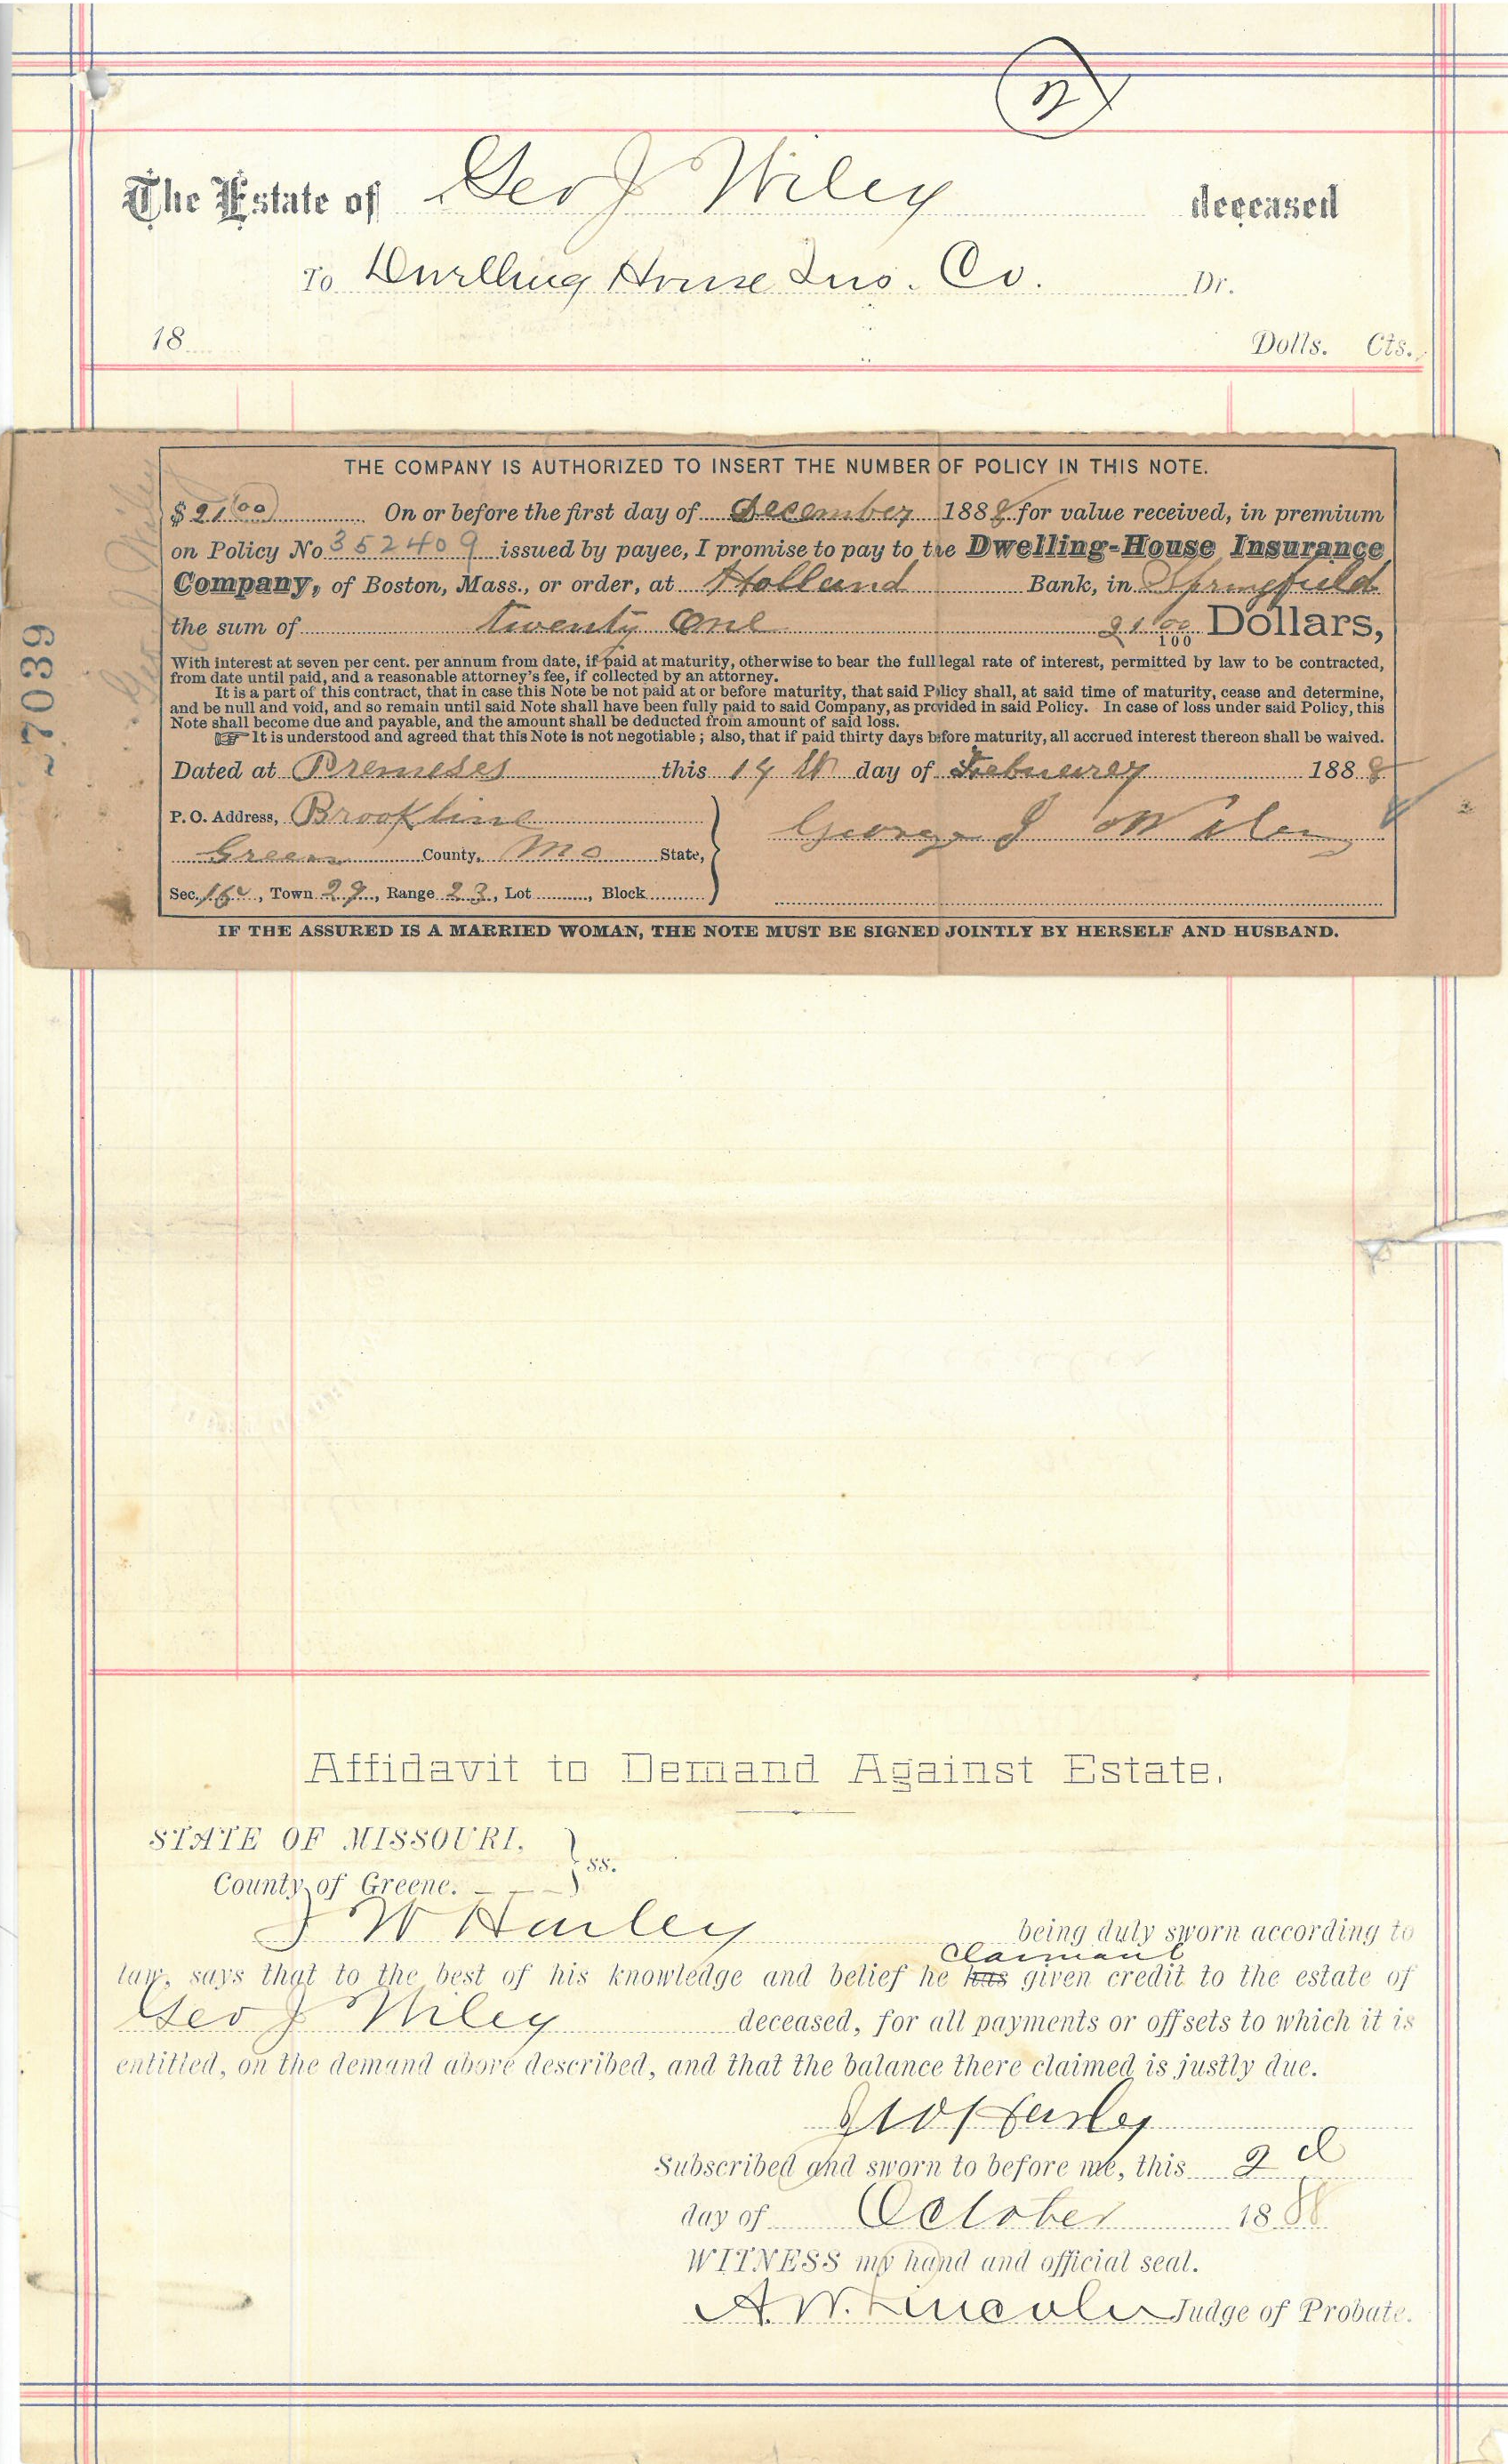 The Estate of Geo J Wiley deceased
To Dwelling House Ins. Co. Dr.
18 Dolls. Cts.
THE COMPANY IS AUTHORIZED TO INSERT THE NUMBER OF POLICY IN THIS NOTE.
$ 21.00 On or before the first day of December 1888 for value received, in premium
on Policy No 352409 issued by payee, I promise to pay to the Dwelling-House Insurance
Company, of Boston, Mass., or order, at Holland Bank, in Springfield
the sum of twenty One 21 00/100 Dollars,
With interest at seven per cent. per annum from date, if paid at maturity, otherwise to bear the full legal rate of interest, permitted by law to be contracted,
from date until paid, and a reasonable attorney's fee, if collected by an attorney.
It is a part of this contract, that in case this Note be not paid at or before maturity, that said Policy shall, at said time of maturity, cease and determine,
and be null and void, and so remain until said Note shall have been fully paid to said Company, as provided in said Policy. In case of loss under said Policy, this
Note shall become due and payable, and the amount shall be deducted from amount of said loss.
☞ It is understood and agreed that this Note is not negotiable; also, that if paid thirty days before maturity, all accrued interest thereon shall be waived.
Dated at Premeses this 14th day of Febuerey 1888
P. O. Address, Brookline
George J Wiley
Green County, Mo State,
Sec. 16, Town 29, Range 23, Lot , Block
IF THE ASSURED IS A MARRIED WOMAN, THE NOTE MUST BE SIGNED JOINTLY BY HERSELF AND HUSBAND.
37039
Geo J Wiley
Affidavit to Demand Against Estate.
STATE OF MISSOURI, } ss.
County of Greene.
J W Harley being duly sworn according to
claimant
law, says that to the best of his knowledge and belief he has given credit to the estate of
Geo J Wiley deceased, for all payments or offsets to which it is
entitled, on the demand above described, and that the balance there claimed is justly due.
J W Harley
Subscribed and sworn to before me, this 2d
day of October 1888
WITNESS my hand and official seal.
A. W. Lincoln Judge of Probate.